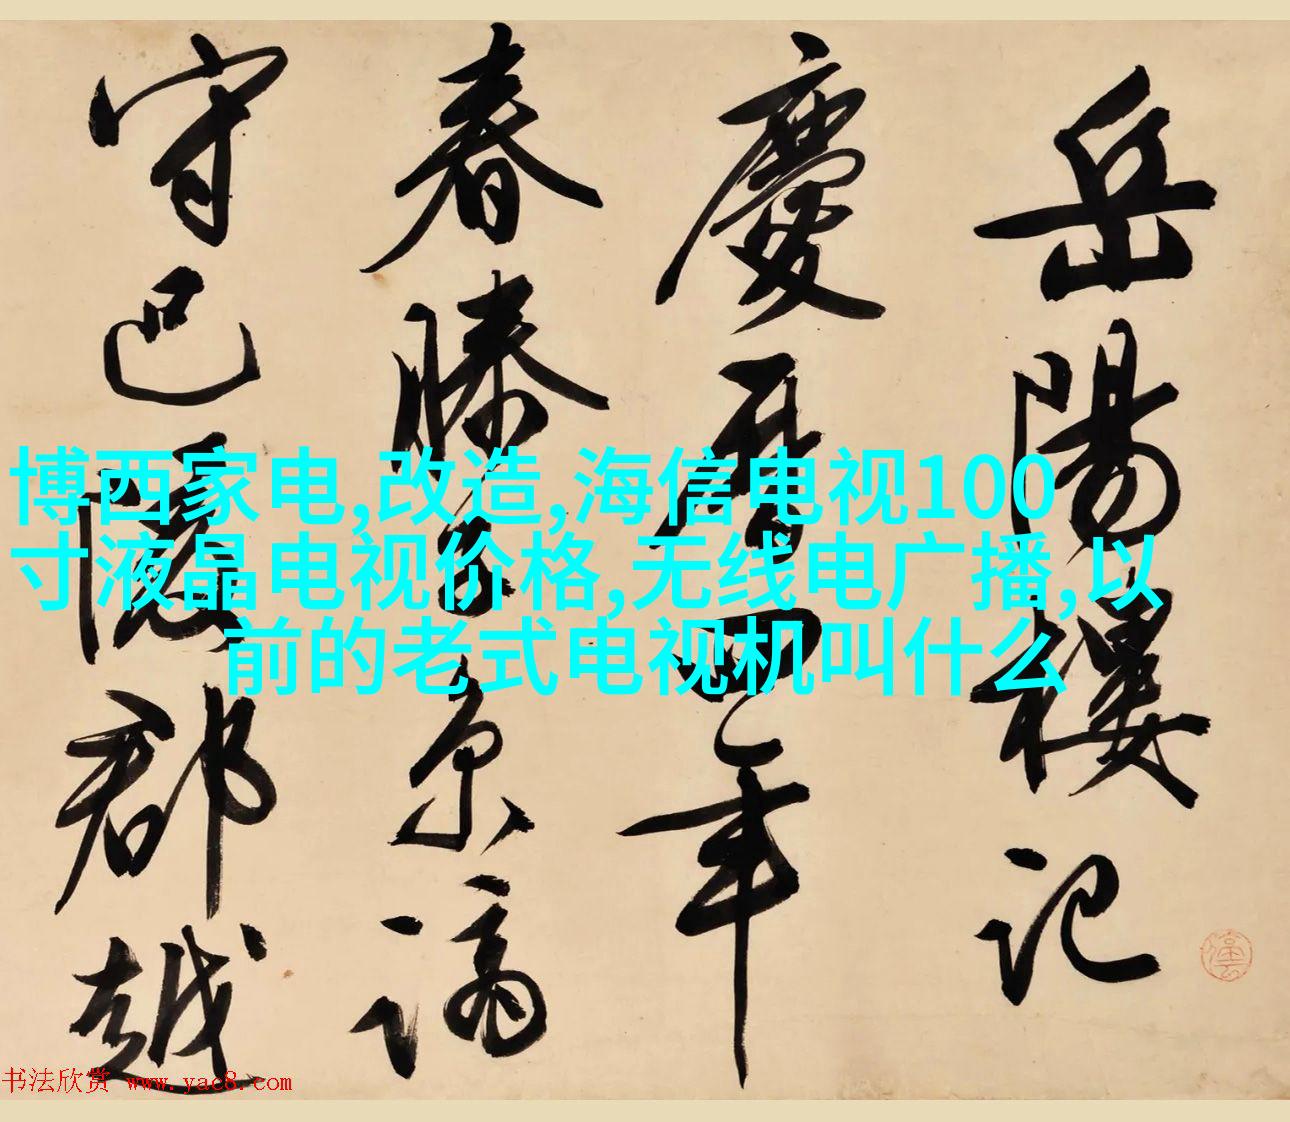 岳陽樓记
慶曆四年
春滕子京謫
守巴陵郡越
博西家电,改造,海信电视100
寸液晶电视价格,无线电广播,以
前的老式电视机叫什么
书法欣赏 www.yac8.com